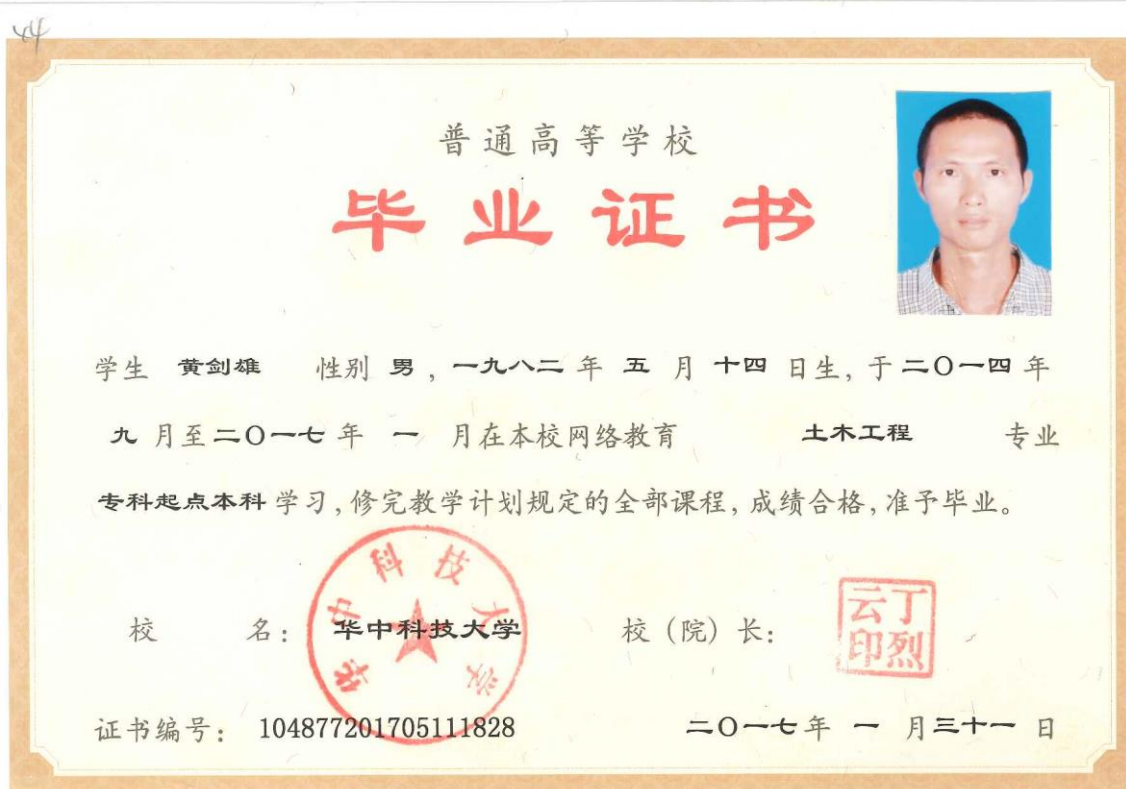 44
普通高等学校
毕业证书
学生 黄剑雄 性别 男 , 一九八二 年 五 月 十四 日生, 于 二〇一四 年
九 月至 二〇一七 年 一 月在本校网络教育 土木工程 专业
专科起点本科 学习, 修完教学计划规定的全部课程, 成绩合格, 准予毕业。
华中科技大学
校 名: 华中科技大学 校 (院) 长:
丁烈云印
证书编号: 104877201705111828 二〇一七 年 一 月 三十一 日